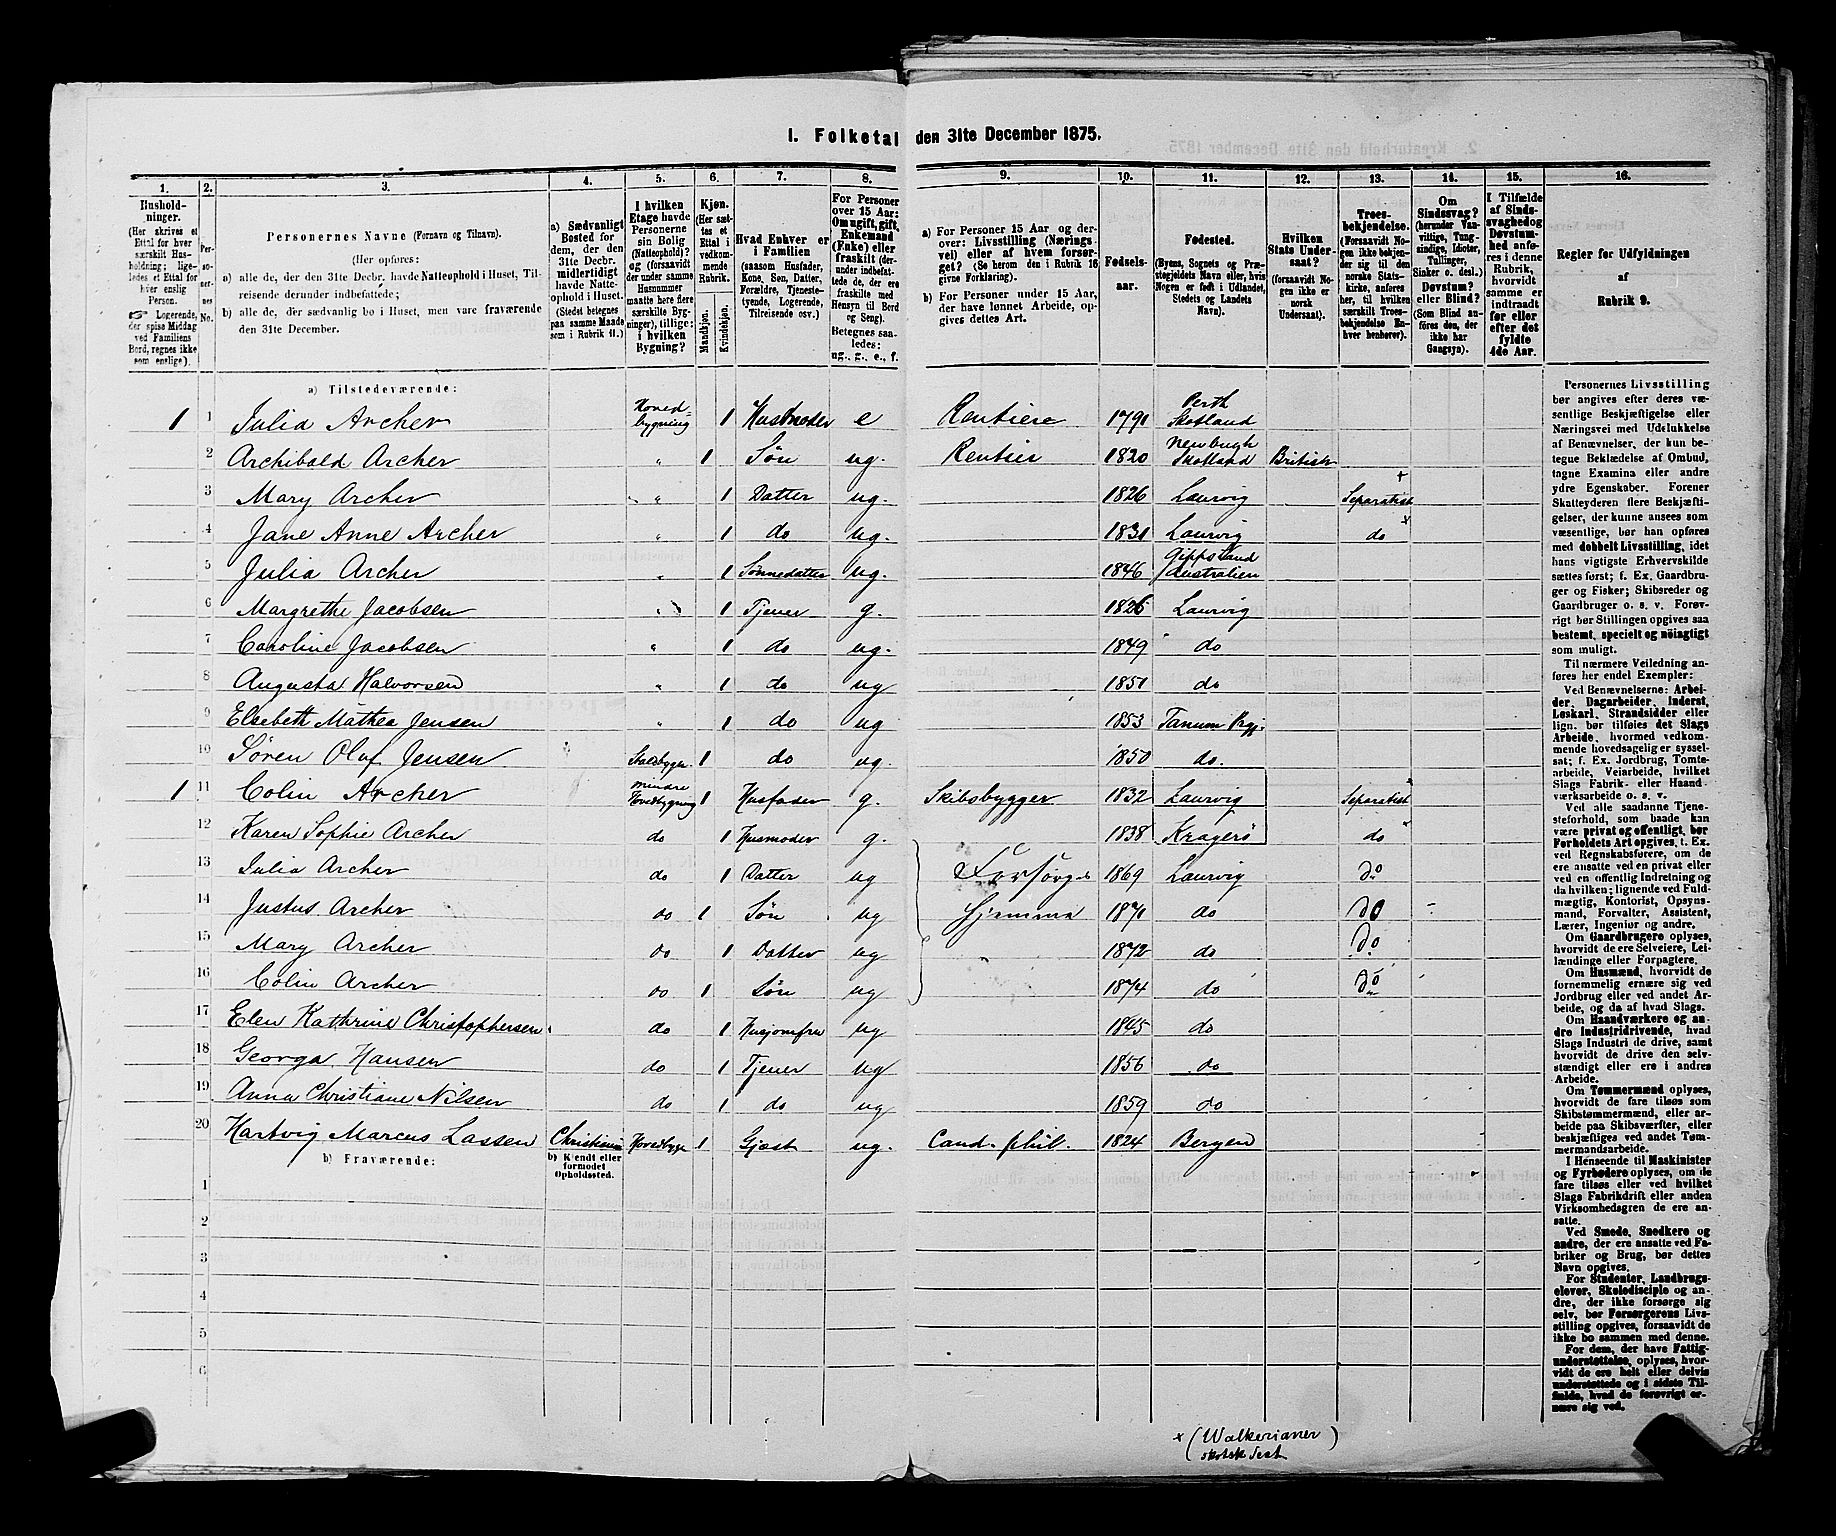 I. Folketal den 31te December 1875.
1. 2. 3. 4. 5. 6. 7. 8. 9. 10. 11. 12. 13. 14. 15. 16.
Hushold-
ninger.
(Her skrives et
Ettal for hver
særskilt Hus-
holdning; lige-
ledes et Ettal for
hver enslig
Person.
☞ Logerende,
der spise Middag
ved Familiens
Bord, regnes ikke
som enslige).
Personernes No.
Personernes Navne (Fornavn og Tilnavn).
(Her opføres:
a) alle de, der den 31te Decbr. havde Natteophold i Huset, Til-
reisende derunder indbefattede;
b) alle de, der sædvanlig bo i Huset, men vare fraværende
den 31te December.
a) Sædvanligt
Bosted for
dem, der den
31te Decbr.
midlertidigt
havde Natte-
ophold i Huset.
(Stedet betegnes
paa samme Maade
som i Rubrik 11.)
I hvilken
Etage havde
Personerne
sin Bolig
(Natteophold)?
og (forsaavidt
der under samme
Husnummer
maatte høre flere
særskilte Byg-
ninger), tillige:
i hvilken
Bygning?
Kjøn.
(Her sæt-
tes et
Ettal i
vedkom-
mende
Rubrik.
Mandkjøn. Kvindekjøn.
Hvad Enhver er
i Familien
(saasom Husfader,
Kone, Søn, Datter,
Forældre, Tjeneste-
tyende, Logerende,
Tilreisende osv.)
For Personer
over 15 Aar:
Om ugift, gift,
Enkemand
(Enke) eller
fraskilt (der-
under indbefat-
tede de, der ere
fraskilte med
Hensyn til Bord
og Seng).
Betegnes saa-
ledes:
ug., g., e., f.
a) For Personer over 15 Aar og der-
over: Livsstilling (Nærings-
vei) eller af hvem forsør-
get? (Se herom den i Rubrik 16
givne Forklaring).
b) For Personer under 15 Aar,
der have lønnet Arbeide, op-
gives dettes Art.
Fødsels-
aar.
Fødested.
(Byens, Sognets og Præ-
stegjeldets Navn eller, hvis
Nogen er født i Udlandet,
Stedets og Landets
Navn).
Hvilken
Stats Under-
saat?
(forsaavidt No-
gen ikke er
norsk
Undersaat).
Troes-
bekjendelse.
(Forsaavidt No-
gen ikke bekjen-
der sig til den
norske Stats-
kirke, anføres
her, til hvilken
særskilt Troes-
bekjendelse En-
hver henhører).
Om
Sindssvag?
(herunder Van-
vittige, Tung-
sindige, Idioter,
Tullinger,
Sinker o. desl.)
Døvstum?
eller Blind?
(Som Blind an-
føres den, der
ikke har
Gangsyn).
I Tilfælde
af Sinds-
svaghed og
Døvstum-
hed anfø-
res i denne
Rubrik,
hvorvidt
samme er
indtraadt
før eller
efter det
fyldte
4de Aar.
Regler for Udfyldningen
af
Rubrik 9.
a) Tilstedeværende:
1 1 Julia Archer Hoved-bygning 1 Husmoder e Rentiere 1791 Perth Skotland
2 Archibald Archer " 1 Søn ug. Rentier 1820 Newburgh Skotland Britisk
3 Mary Archer " 1 Datter ug. 1826 Laurvig Separatist +
4 Jane Anne Archer " 1 do ug. 1831 Laurvig do x
5 Julia Archer " 1 Sønnedatter ug. 1846 Gippsland Australien
6 Margrethe Jacobsen " 1 Tjener g. 1826 Laurvig
7 Caroline Jacobsen " 1 do ug. 1849 do
8 Augusta Halvorsen " 1 do ug 1851 do
9 Elsebeth Mathea Jensen " 1 do ug 1853 Tanum Prgj.
10 Søren Olaf Jensen 1 do ug. 1850 do.
1 11 Colin Archer mindre Hovedbygning 1 Husfader g. Skibsbygger 1832 Laurvig Separatist
12 Karen Sophie Archer do 1 Husmoder g. 1838 Kragerö do
13 Julia Archer do 1 Datter ug Forsørges 1869 Laurvig do
14 Justus Archer do 1 Søn ug hjemme 1871 do do
15 Mary Archer do 1 Datter ug 1872 do do
16 Colin Archer do 1 Søn ug 1874 do do
17 Elen Kathrine Christophersen do 1 Husjomfru ug 1845 do
18 Georga Hansen do 1 Tjener ug 1856 do
19 Anna Christiane Nilsen do 1 do ug 1859 do
20 Hartvig Marcus Lassen Christiania Hovedbygn 1 Gjæst ug. Cand. phil. 1824 Bergen
b) Fraværende:
b) Kjendt eller
formodet
Opholdssted.
1
2
3
4
5
6
Personernes Livsstilling
bør angives efter deres væ-
sentlige Beskjæftigelse eller
Næringsvei med Udelukkelse
af Benævnelser, der kun be-
tegne Beklædelse af Ombud,
tagne Examina eller andre
ydre Egenskaber. Forener
Skatteyderen flere Beskjæfti-
gelser, der kunne ansees som
væsentlige, bør han opføres
med dobbelt Livsstilling, idet
hans vigtigste Erhvervskilde
sættes først; f. Ex. Gaardbru-
ger og Fisker; Skibsreder og
Gaardbruger o. s. v. Forøv-
rigt bør Stillingen opgives saa
bestemt, specielt og nöiagtigt
som muligt.
Til nærmere Veiledning an-
føres her endel Exempler:
Ved Benævnelserne: Arbei-
der, Dagarbeider, Inderst,
Løskarl, Strandsidder eller
lign. bør tilføies det Slags
Arbeide, hvormed vedkom-
mende hovedsagelig er syssel-
sat; f. Ex. Jordbrug, Tomte-
arbeide, Veiarbeide, hvilket
Slags Fabrik- eller Haand-
værksarbeide o. s. v.
Ved alle saadanne Tjene-
steforhold, som baade kan
være privat og offentligt, bør
Forholdets Art opgives, t. Ex.
ved Regnskabsførere, om de
ere ansatte ved en privat eller
ved en offentlig Indretning og
da hvilken; lignende ved Fuld-
mægtig, Kontorist, Opsyns-
mand, Forvalter, Assistent,
Lærer, Ingeniør og andre.
Om Gaardbrugere oplyses,
hvorvidt de ere Selveiere, Lei-
lændinge eller Forpagtere.
Om Husmænd, hvorvidt de
fornemmelig ernære sig ved
Jordbrug eller ved andet Ar-
beide, og da af hvad Slags.
Om Haandværkere og an-
dre Industridrivende, hvad
Slags Industri de drive, samt
hvorvidt de drive den selv-
stændigt eller ere i andres
Arbeide.
Om Tømmermænd oplyses,
hvorvidt de fare tilsøs som
Skibstømmermænd, eller ar-
beide paa Skibsværfter, eller
beskjæftiges ved andet Tøm-
mermandsarbeide.
I Henseende til Maskinister
og Fyrbødere oplyses, om de
fare tilsøs eller ved hvilket
Slags Fabrikdrift eller anden
Virksomhedsgren de ere an-
satte.
Ved Smede, Snedkere og
andre, der ere ansatte ved Fa-
briker og Brug, bør dettes
Navn opgives.
For Studenter, Landbrugs-
elever, Skoledisciple og an-
dre, der ikke forsørge sig
selv, bør Forsørgerens Livs-
stilling opgives, forsaavidt de
ikke bo sammen med denne.
For dem, der have Fattig-
understøttelse, oplyses, hvor-
vidt de ere helt eller delvis
understøttede og i sidste Til-
fælde, hvad de forøvrigt er-
nære sig ved.
x (Walkerianer)
skotsk Sect